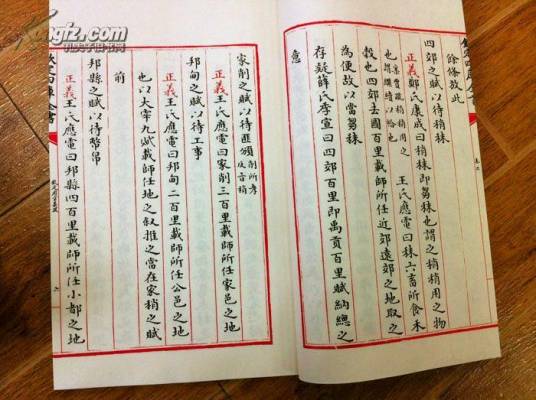 餘條放此
四郊之賦以待稍秣
正義鄭氏康成曰稍秣即芻秣也謂之稍稍用之物
也案賈疏稍稍用之也謂繼續以給也王氏應電曰秣六畜所食禾
穀也四郊去國百里載師所任近郊遠郊之地取之
為便故以當芻秣
存疑薛氏季宣曰四郊百里即禹貢百里賦納總之
意
家削之賦以待匪頒削所考反音稍
正義王氏應電曰家削三百里載師所任家邑之地
邦甸之賦以待工事
正義王氏應電曰邦甸二百里載師所任公邑之地
也以大宰九賦載師任地之敘推之當在家稍之賦
前
邦縣之賦以待幣帛
正義王氏應電曰邦縣四百里載師所任小都之地